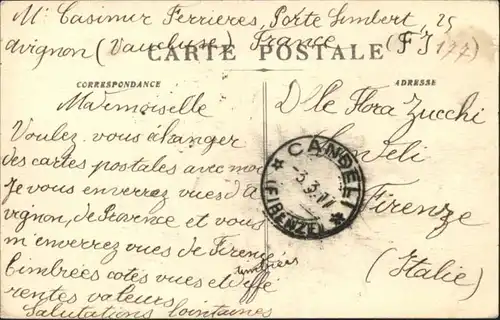 Mr Casimir Ferrières, Porte Limbert, 25
Avignon (Vaucluse) France
CARTE POSTALE
CORRESPONDANCE
ADRESSE
Mademoiselle
Voulez vous échanger
des cartes postales avec moi
Je vous enverrez vues d'A
vignon, de Provence et vous
m'enverrez vues de Firenze
timbrées cotés vues et diffé
timbrées
rentes valeurs
Salutations lointaines
Dlle Flora Zucchi
Candeli
Firenze
(Italie)
CANDELI
(FIRENZE)